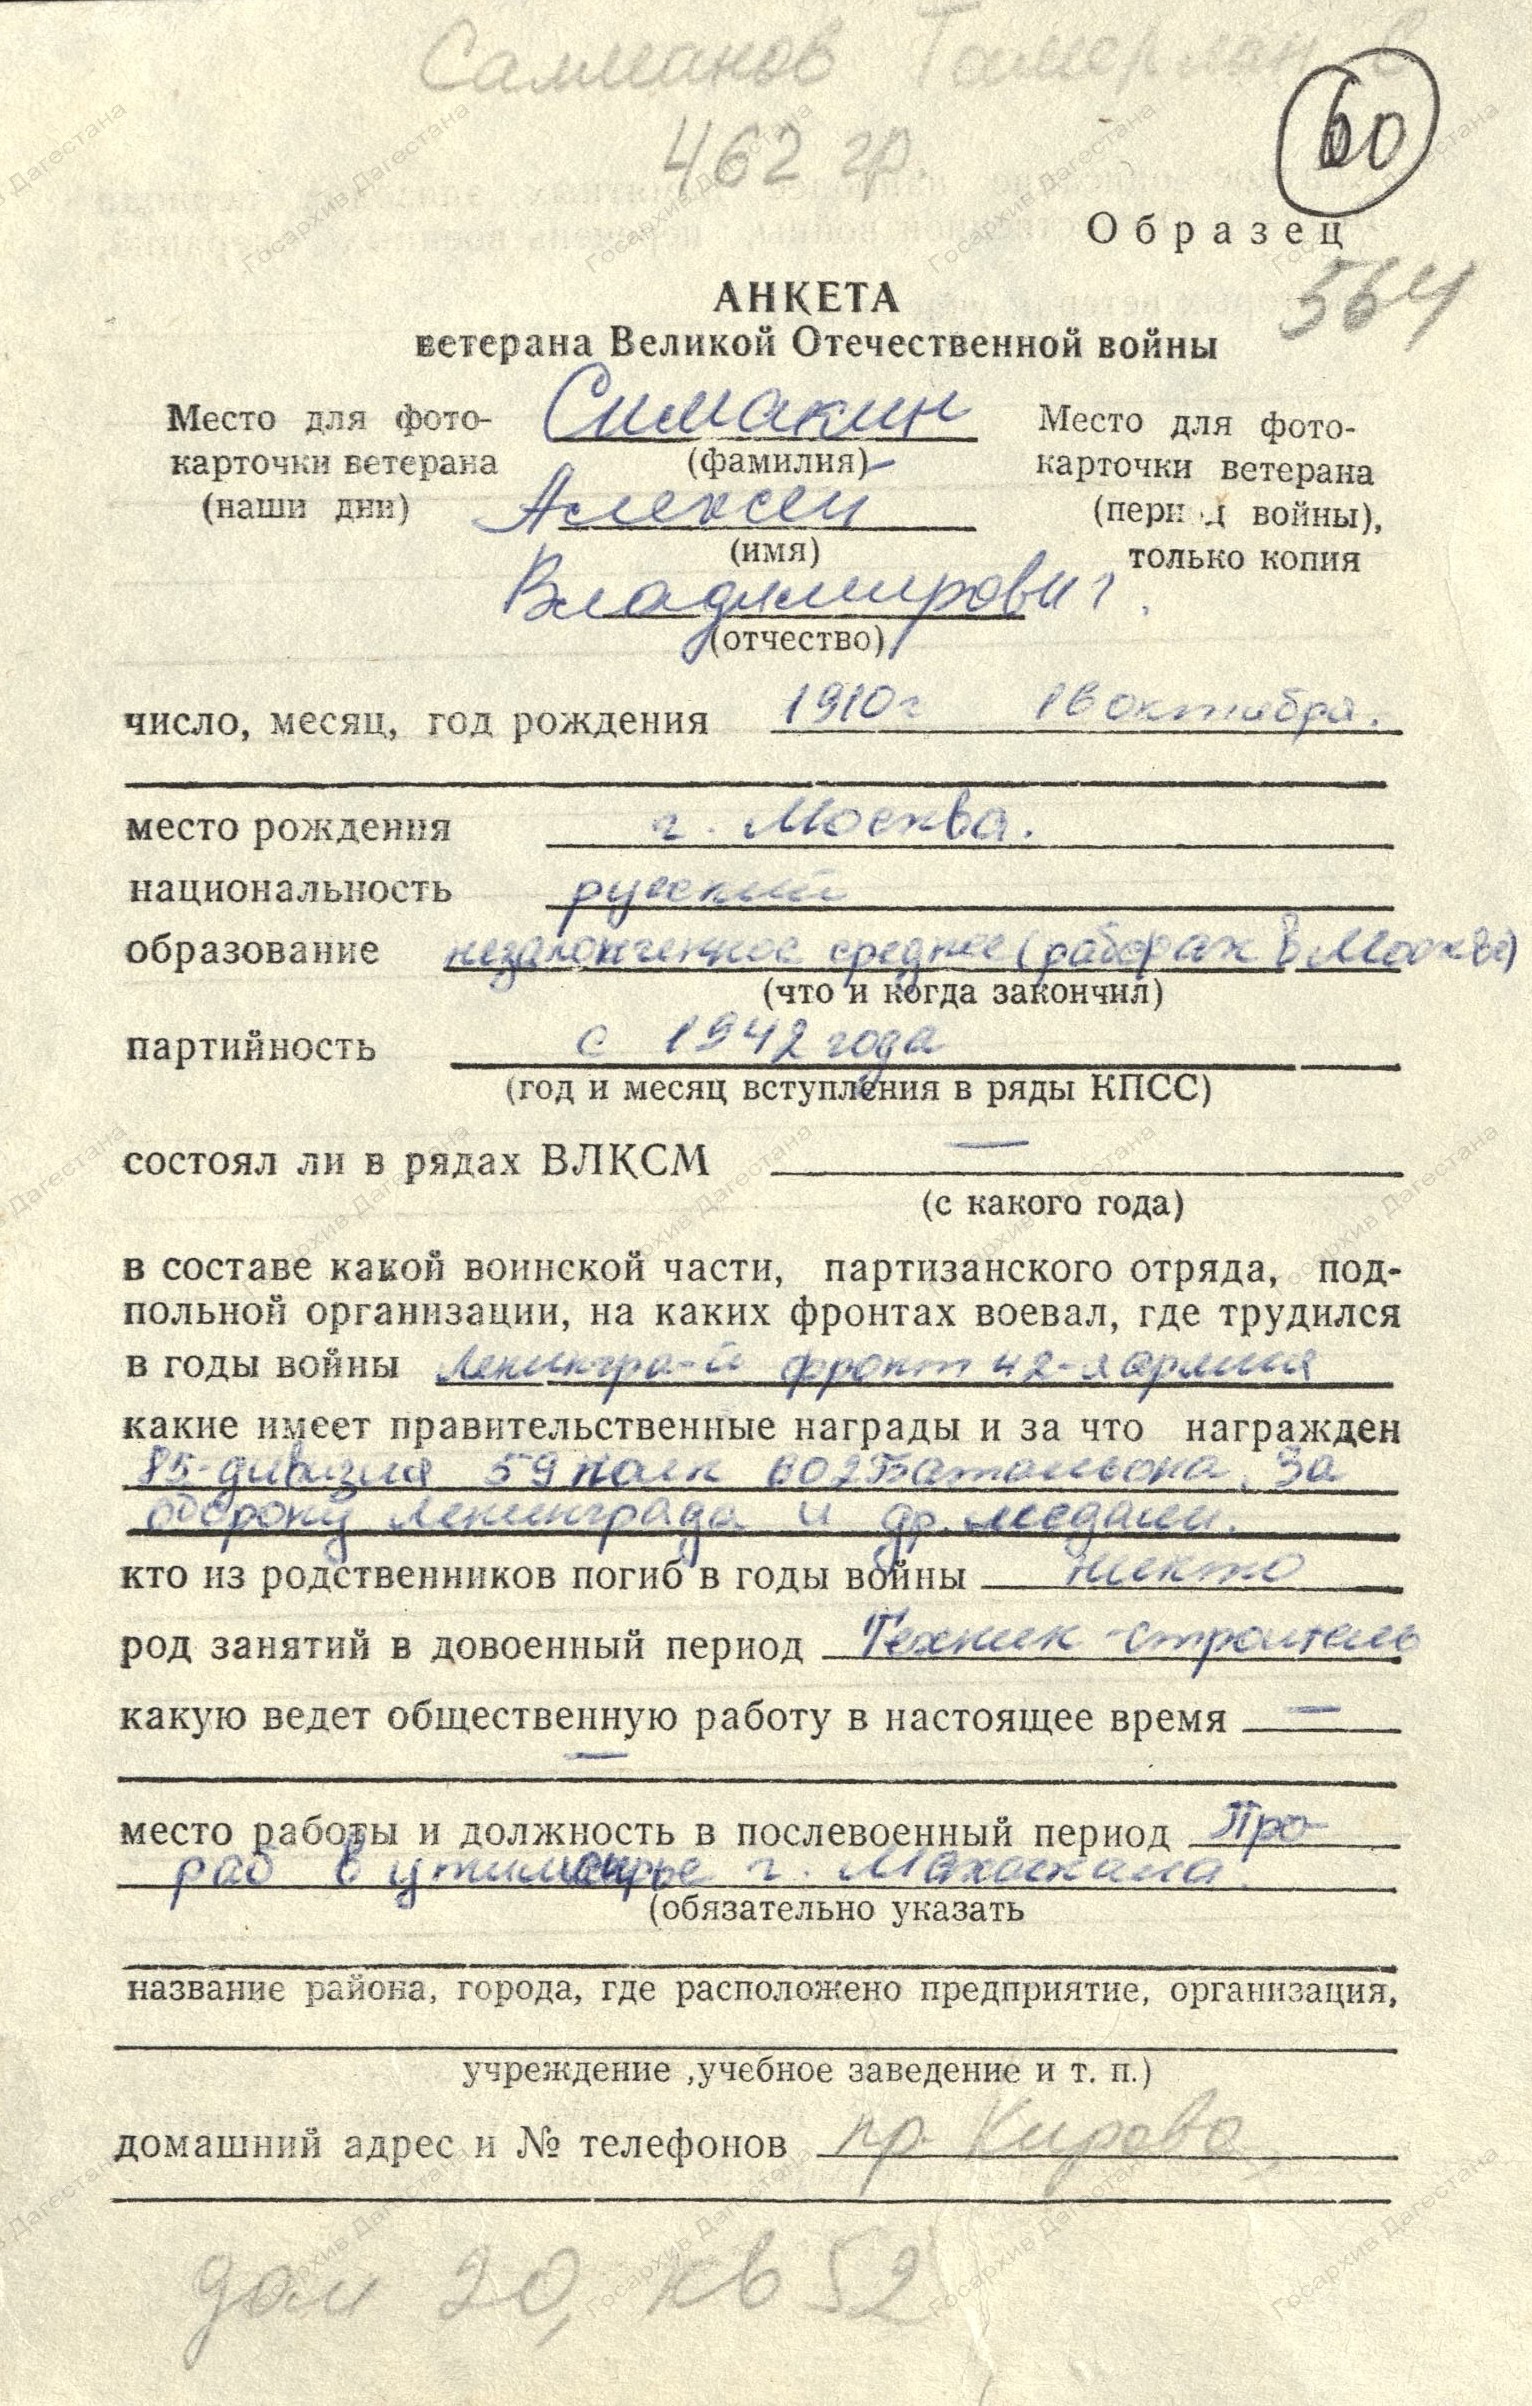 Салманов Тамерлан
462 гр.
60
Образец
564
АНКЕТА
ветерана Великой Отечественной войны
Место для фото-
карточки ветерана
(наши дни)
Симакин
(фамилия)
Алексей
(имя)
Владимирович.
(отчество)
Место для фото-
карточки ветерана
(период войны),
только копия
число, месяц, год рождения 1910г 16 октября.
место рождения г. Москва.
национальность русский
образование незаконченное среднее (рабфак в Москве)
(что и когда закончил)
партийность с 1942 года
(год и месяц вступления в ряды КПСС)
состоял ли в рядах ВЛКСМ —
(с какого года)
в составе какой воинской части, партизанского отряда, под-
польной организации, на каких фронтах воевал, где трудился
в годы войны Ленингра-й фронт 42-я армия
какие имеет правительственные награды и за что награжден
85-дивизия 59 полк 602 Батальона. За
оборону Ленинграда и др. медали.
кто из родственников погиб в годы войны никто
род занятий в довоенный период Техник-строитель
какую ведет общественную работу в настоящее время —
—
место работы и должность в послевоенный период Про-
раб в утильсырье г. Махачкала.
(обязательно указать
название района, города, где расположено предприятие, организация,
учреждение ,учебное заведение и т. п.)
домашний адрес и № телефонов пр. Кирова,
дом 20, кв 52
Госархив Дагестана